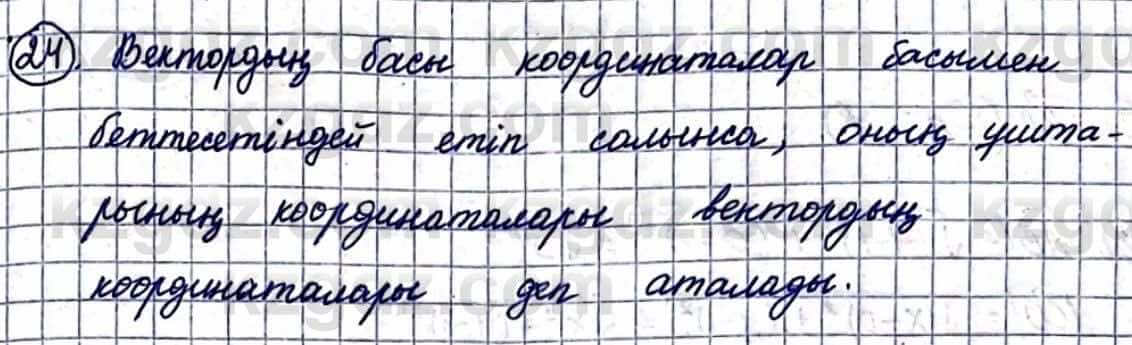 24. Вектордың басы координаталар басымен
беттесетіндей етіп салынса, оның ұшта-
рының координаталары вектордың
координаталары деп аталады.